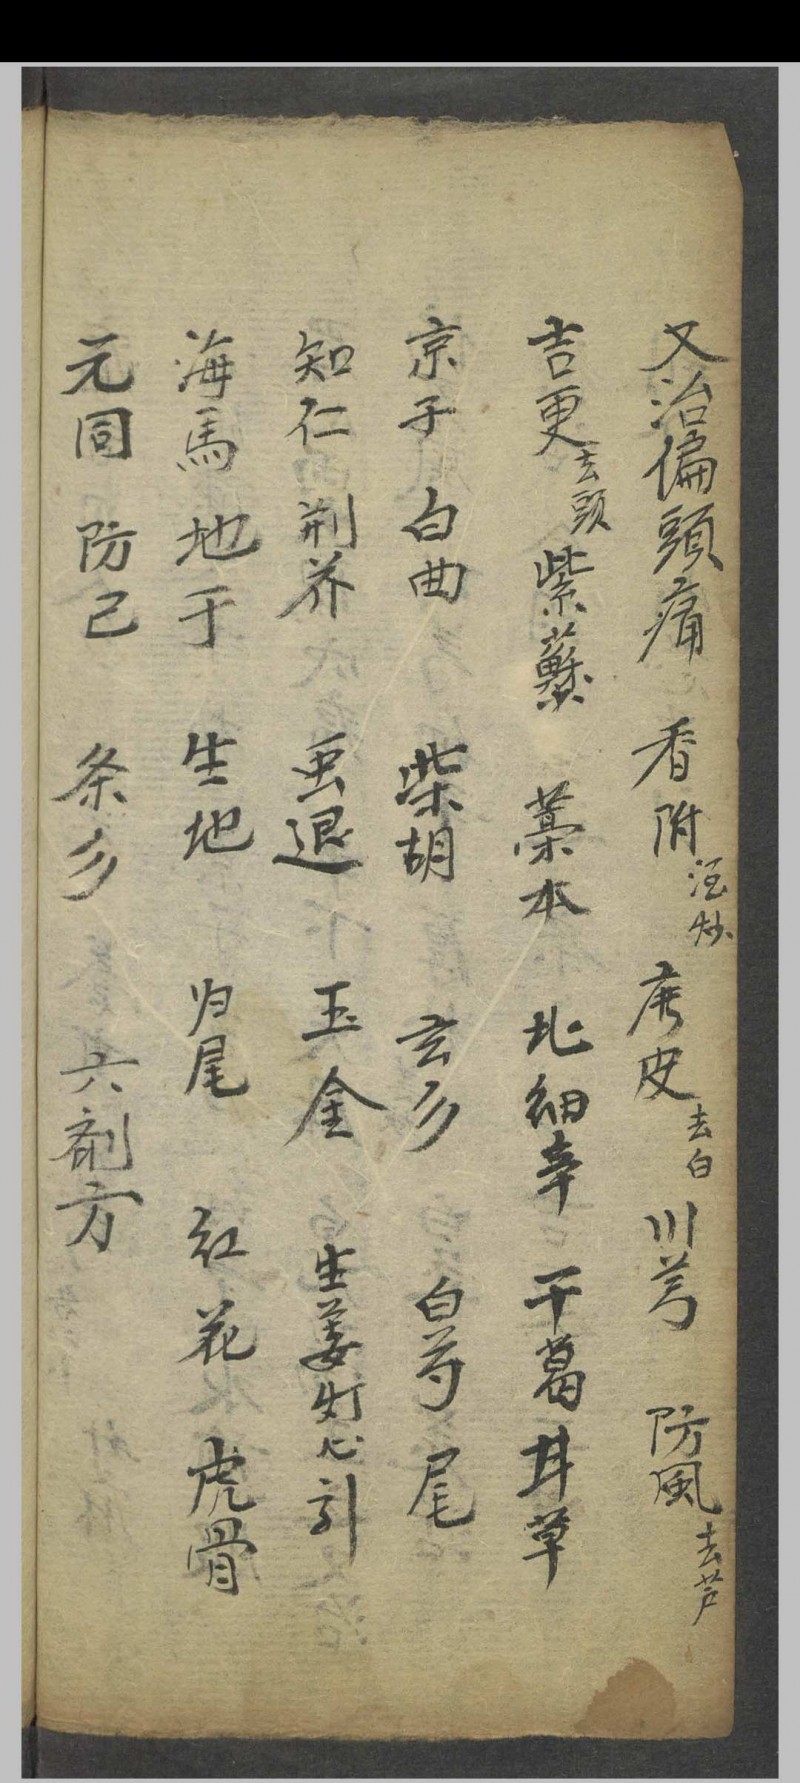 又治偏頭痛 香附 酒炒 陳皮 去白 川芎 防風 去芦
吉更 去頭 紫蘇 藁本 北細辛 干葛 甘草
京子 白曲 柴胡 玄乡 白芍 尾
知仁 荆芥 虫退 玉金 生姜灯心引
海馬 地于 生地 归尾 红花 虎骨
元同 防己 条乡 六剤方